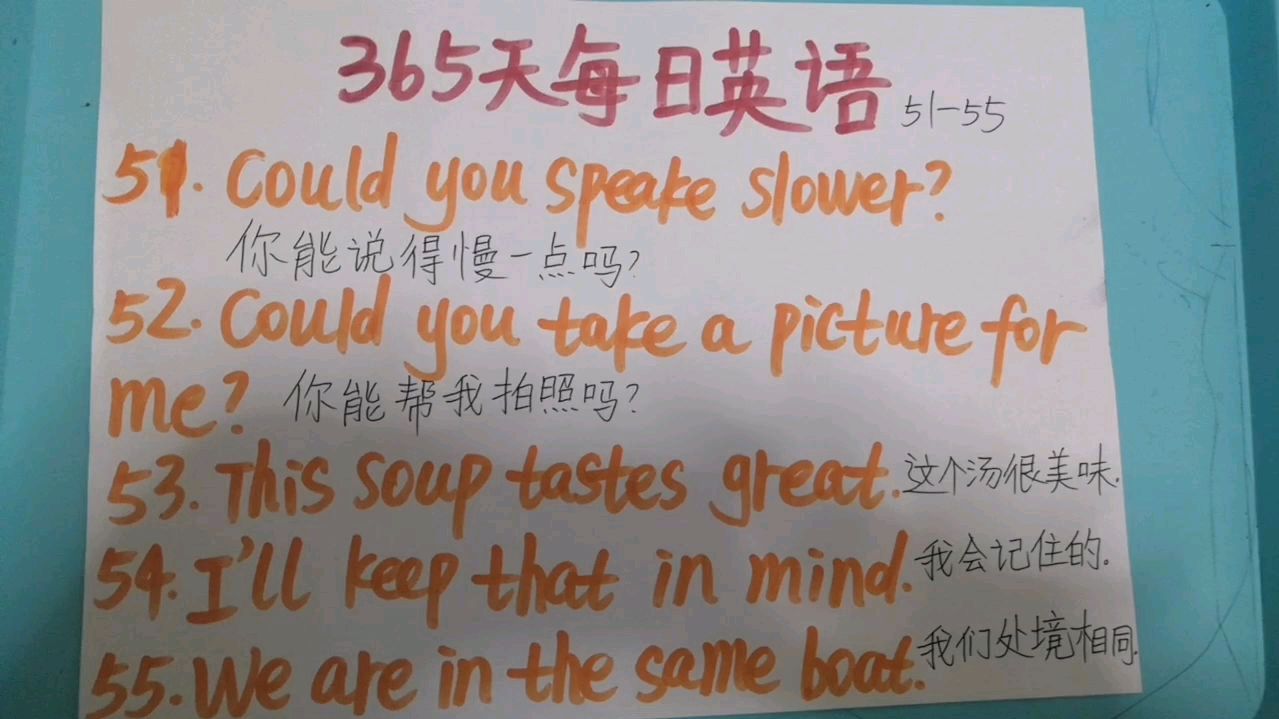 365天每日英语 51-55
51. Could you speake slower?
你能说得慢一点吗?
52. Could you take a picture for
me? 你能帮我拍照吗?
53. This soup tastes great. 这个汤很美味.
54. I'll keep that in mind. 我会记住的.
55. We are in the same boat. 我们处境相同.